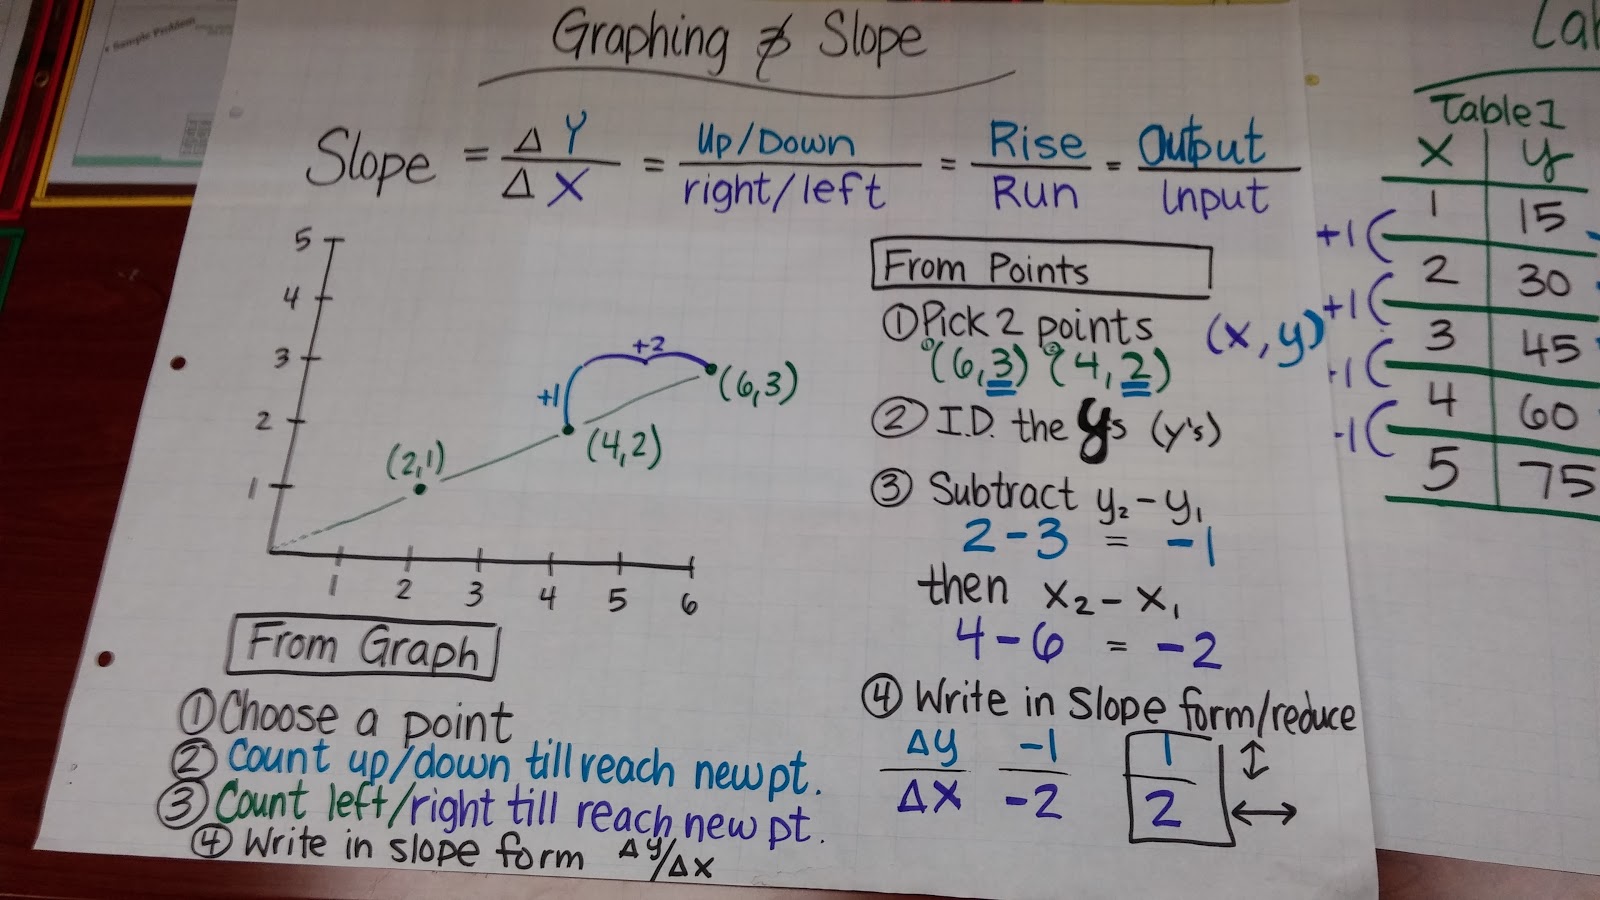 • Sample Problem
Graphing & Slope
Slope = Δ Y / Δ X = Up/Down / right/left = Rise / Run = Output / Input
5
4
3
2
1
1 2 3 4 5 6
(2,1)
(4,2)
(6,3)
+1
+2
From Graph
① Choose a point
② Count up/down till reach new pt.
③ Count left/right till reach new pt.
④ Write in slope form Δy/Δx
From Points
① Pick 2 points (x,y)
① (6,3) ② (4,2)
② I.D. the ys (y's)
③ Subtract y₂ - y₁
2 - 3 = -1
then x₂ - x₁
4 - 6 = -2
④ Write in slope form/reduce
Δy / Δx -1 / -2 1 / 2
Table 1
x y
1 15
+1
2 30
+1
3 45
+1
4 60
+1
5 75